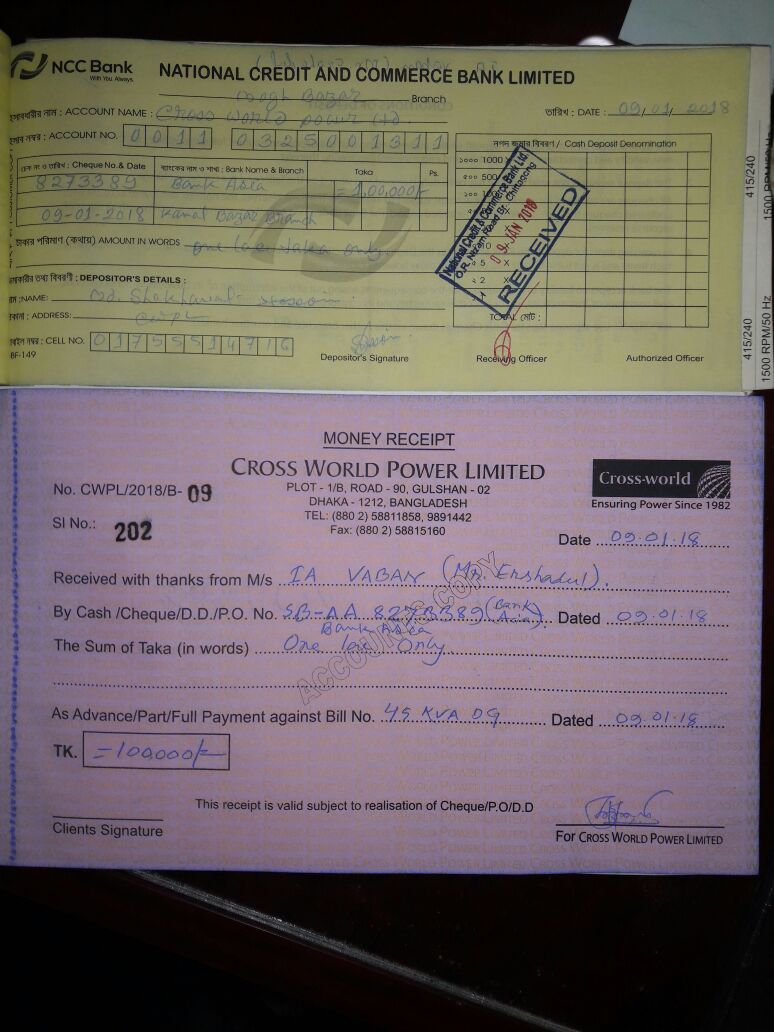 NCC Bank
With You Always
NATIONAL CREDIT AND COMMERCE BANK LIMITED
Bazar Branch
ACCOUNT NAME : Cross World power Ltd
তারিখ : DATE : 09/01/2018
ACCOUNT NO. 0011 0325001311
নগদ জমার বিবরণ / Cash Deposit Denomination
চেক নং ও তারিখ : Cheque No. & Date ব্যাংকের নাম ও শাখা : Bank Name & Branch Taka Ps.
8273389 Bank Asia =1,00,000/-
09-01-2018 Bazar Branch
টাকার পরিমাণ (কথায়) AMOUNT IN WORDS one lac taka only
১০০০ 1000
৫০০ 500
১০০
৫ 5 X
২ 2 X
TOTAL মোট :
National Credit & Commerce Bank Ltd.
O.R. Nizam Road Br. Chittagong
09 JAN 2018
RECEIVED
DEPOSITOR'S DETAILS :
NAME: Md. Shakhawat Hossain
ADDRESS: CWPL
CELL NO. 01755514716
BF-149
Depositor's Signature Receiving Officer Authorized Officer
415/240
1500 RPM/50 Hz
415/240
1500 RPM/50 Hz
MONEY RECEIPT
CROSS WORLD POWER LIMITED
PLOT - 1/B, ROAD - 90, GULSHAN - 02
DHAKA - 1212, BANGLADESH
TEL: (880 2) 58811858, 9891442
Fax: (880 2) 58815160
Cross-world
Ensuring Power Since 1982
No. CWPL/2018/B- 09
Sl No.: 202
Date 09.01.18
Received with thanks from M/s IA VABAN (Mr. Ershadul).
By Cash /Cheque/D.D./P.O. No. SB-AA 8273389 (Bank Asia) Dated 09.01.18
Bank Asia
The Sum of Taka (in words) One lac Only
ACCOUNTS COPY
As Advance/Part/Full Payment against Bill No. 45 KVA DG Dated 09.01.18
TK. =100,000/-
This receipt is valid subject to realisation of Cheque/P.O/D.D
Clients Signature
For CROSS WORLD POWER LIMITED